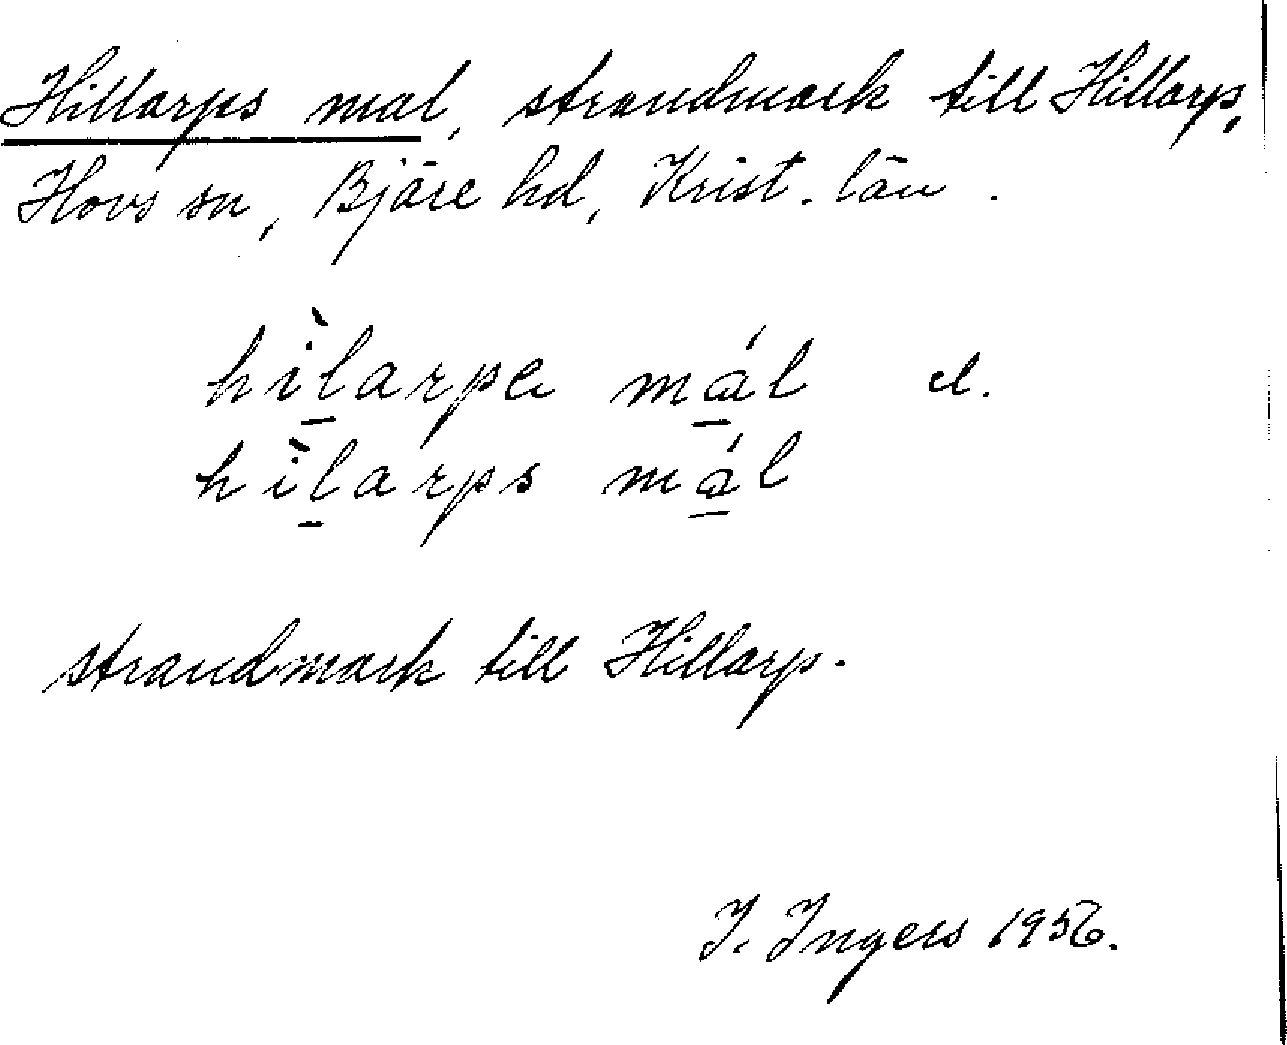 Hillarps mal, strandmark till Hillarp,
Hovs sn, Bjäre hd, Krist. län.
hì̱larpa má̱l el.
hì̱larps má̱l
strandmark till Hillarp.
I. Ingers 1956.